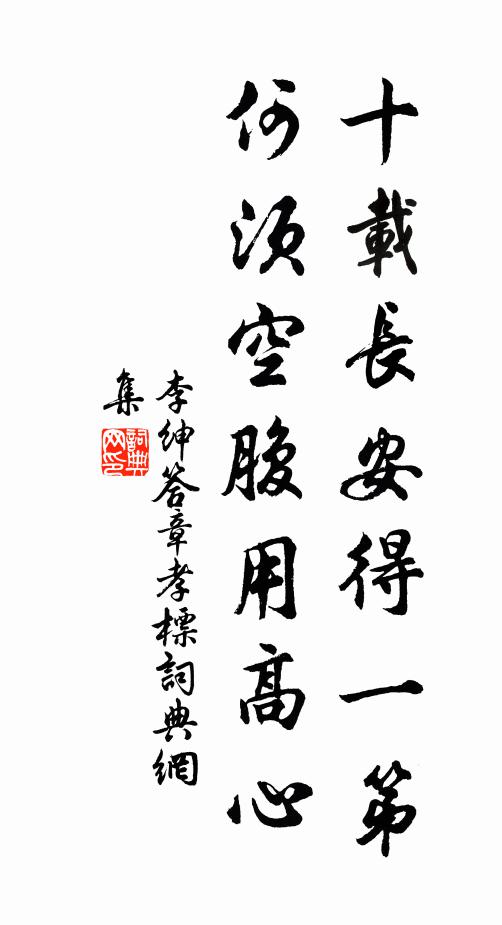 十載長安得一第
何須空腹用高心
李紳答章孝標詞典網
集
詞典
网印